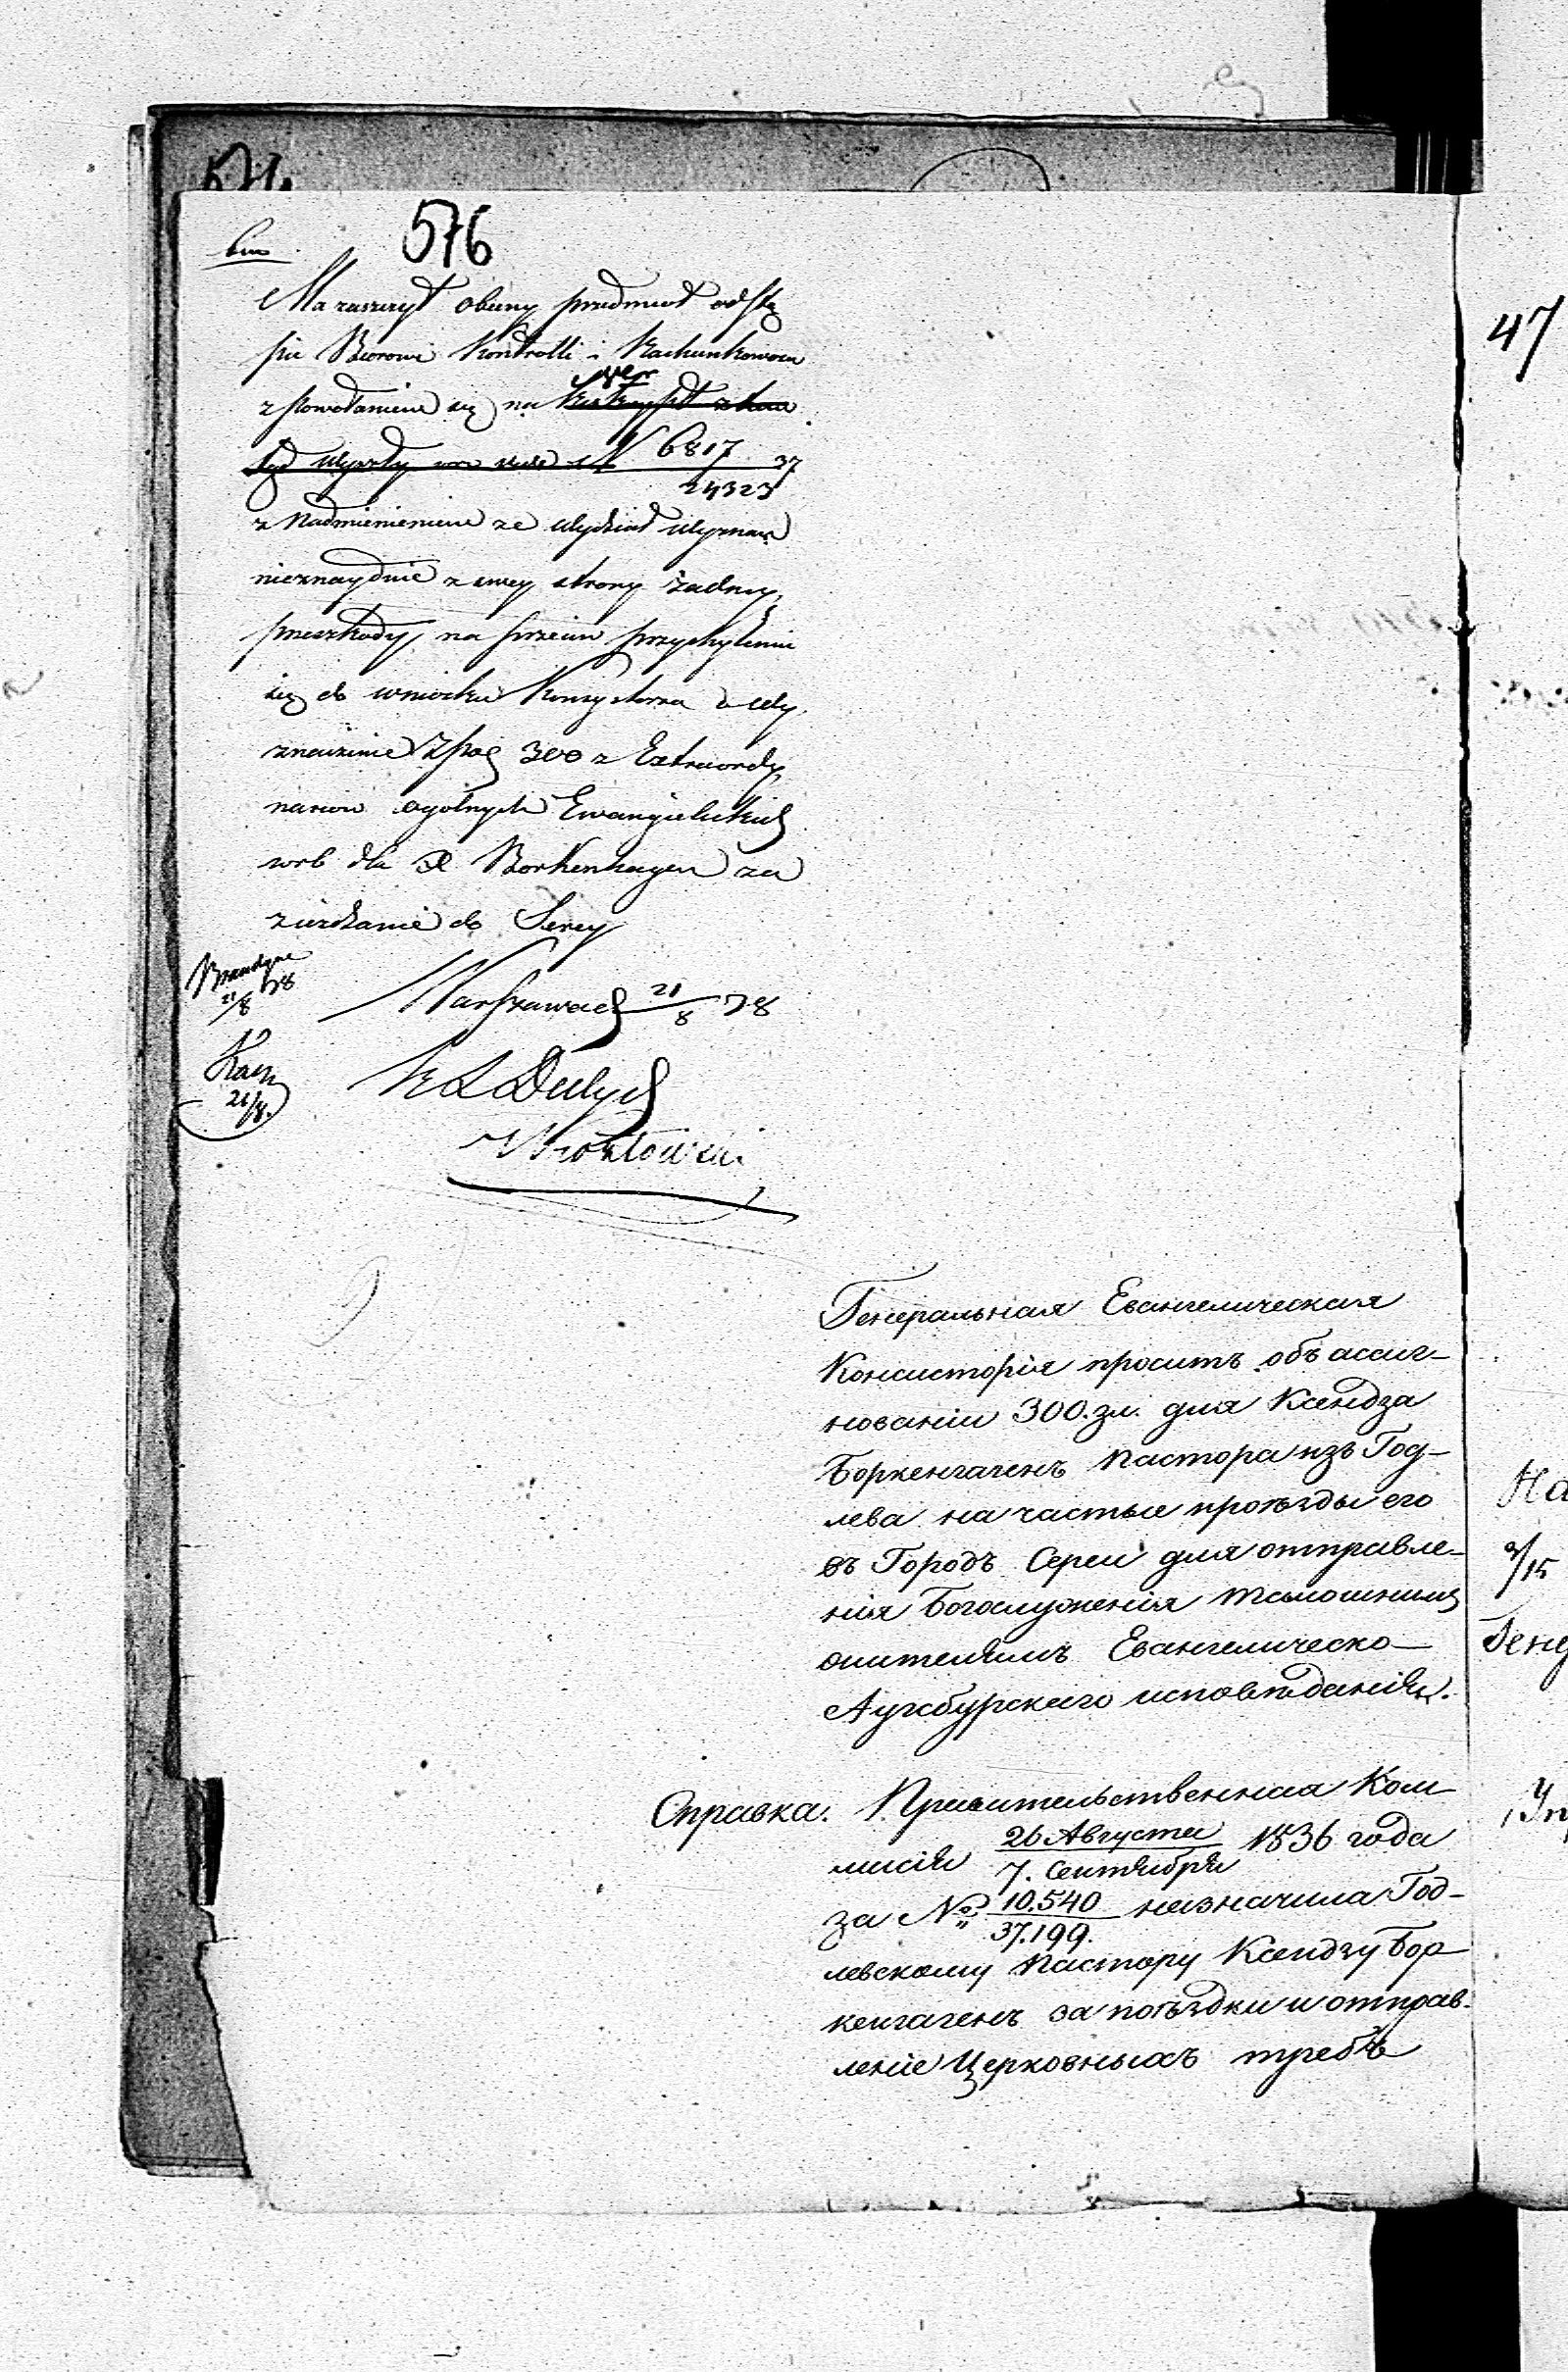 576
Ma zaszczyt obecny przedmiot odstą
pić Biorowi Kontrolli i Rachunkowości
z powołaniem się na
N 6817 37
24323
z nadmienieniem ze Wydział Wyznań
nieznayduie z swey strony żadney
przeszkody, na przeciw przychyleniu
się do wniosku Konsystorza o wy
znaczenie Zpol 300 z Extraordy
nariów ogólnych Ewangielickich
dla X Borkenhagen za
zieżdżanie do Serey
21/8 38
Warszawa d 21/8 38
21/8.
Генеральная Евангелическая
Консисторія проситъ объ ассиг-
нованіи 300. зл. для Ксендза
Боркенгагенъ Пастора изъ Год-
лева на частые проѣзды его
въ Городъ Сереи для отправле-
нія Богослуженія тамошнимъ
жителямъ Евангелическо-
Аугсбурскаго исповѣданія.
Справка. Правительственная Ком-
мисія 26 Августа / 7. Сентября 1836 года
за № 10.540 / 37.199. назначила Год-
левскому Пастору Ксендзу Бор
кенгагенъ за поѣздки и отправ-
леніе Церковныхъ требъ
47
На
Гене